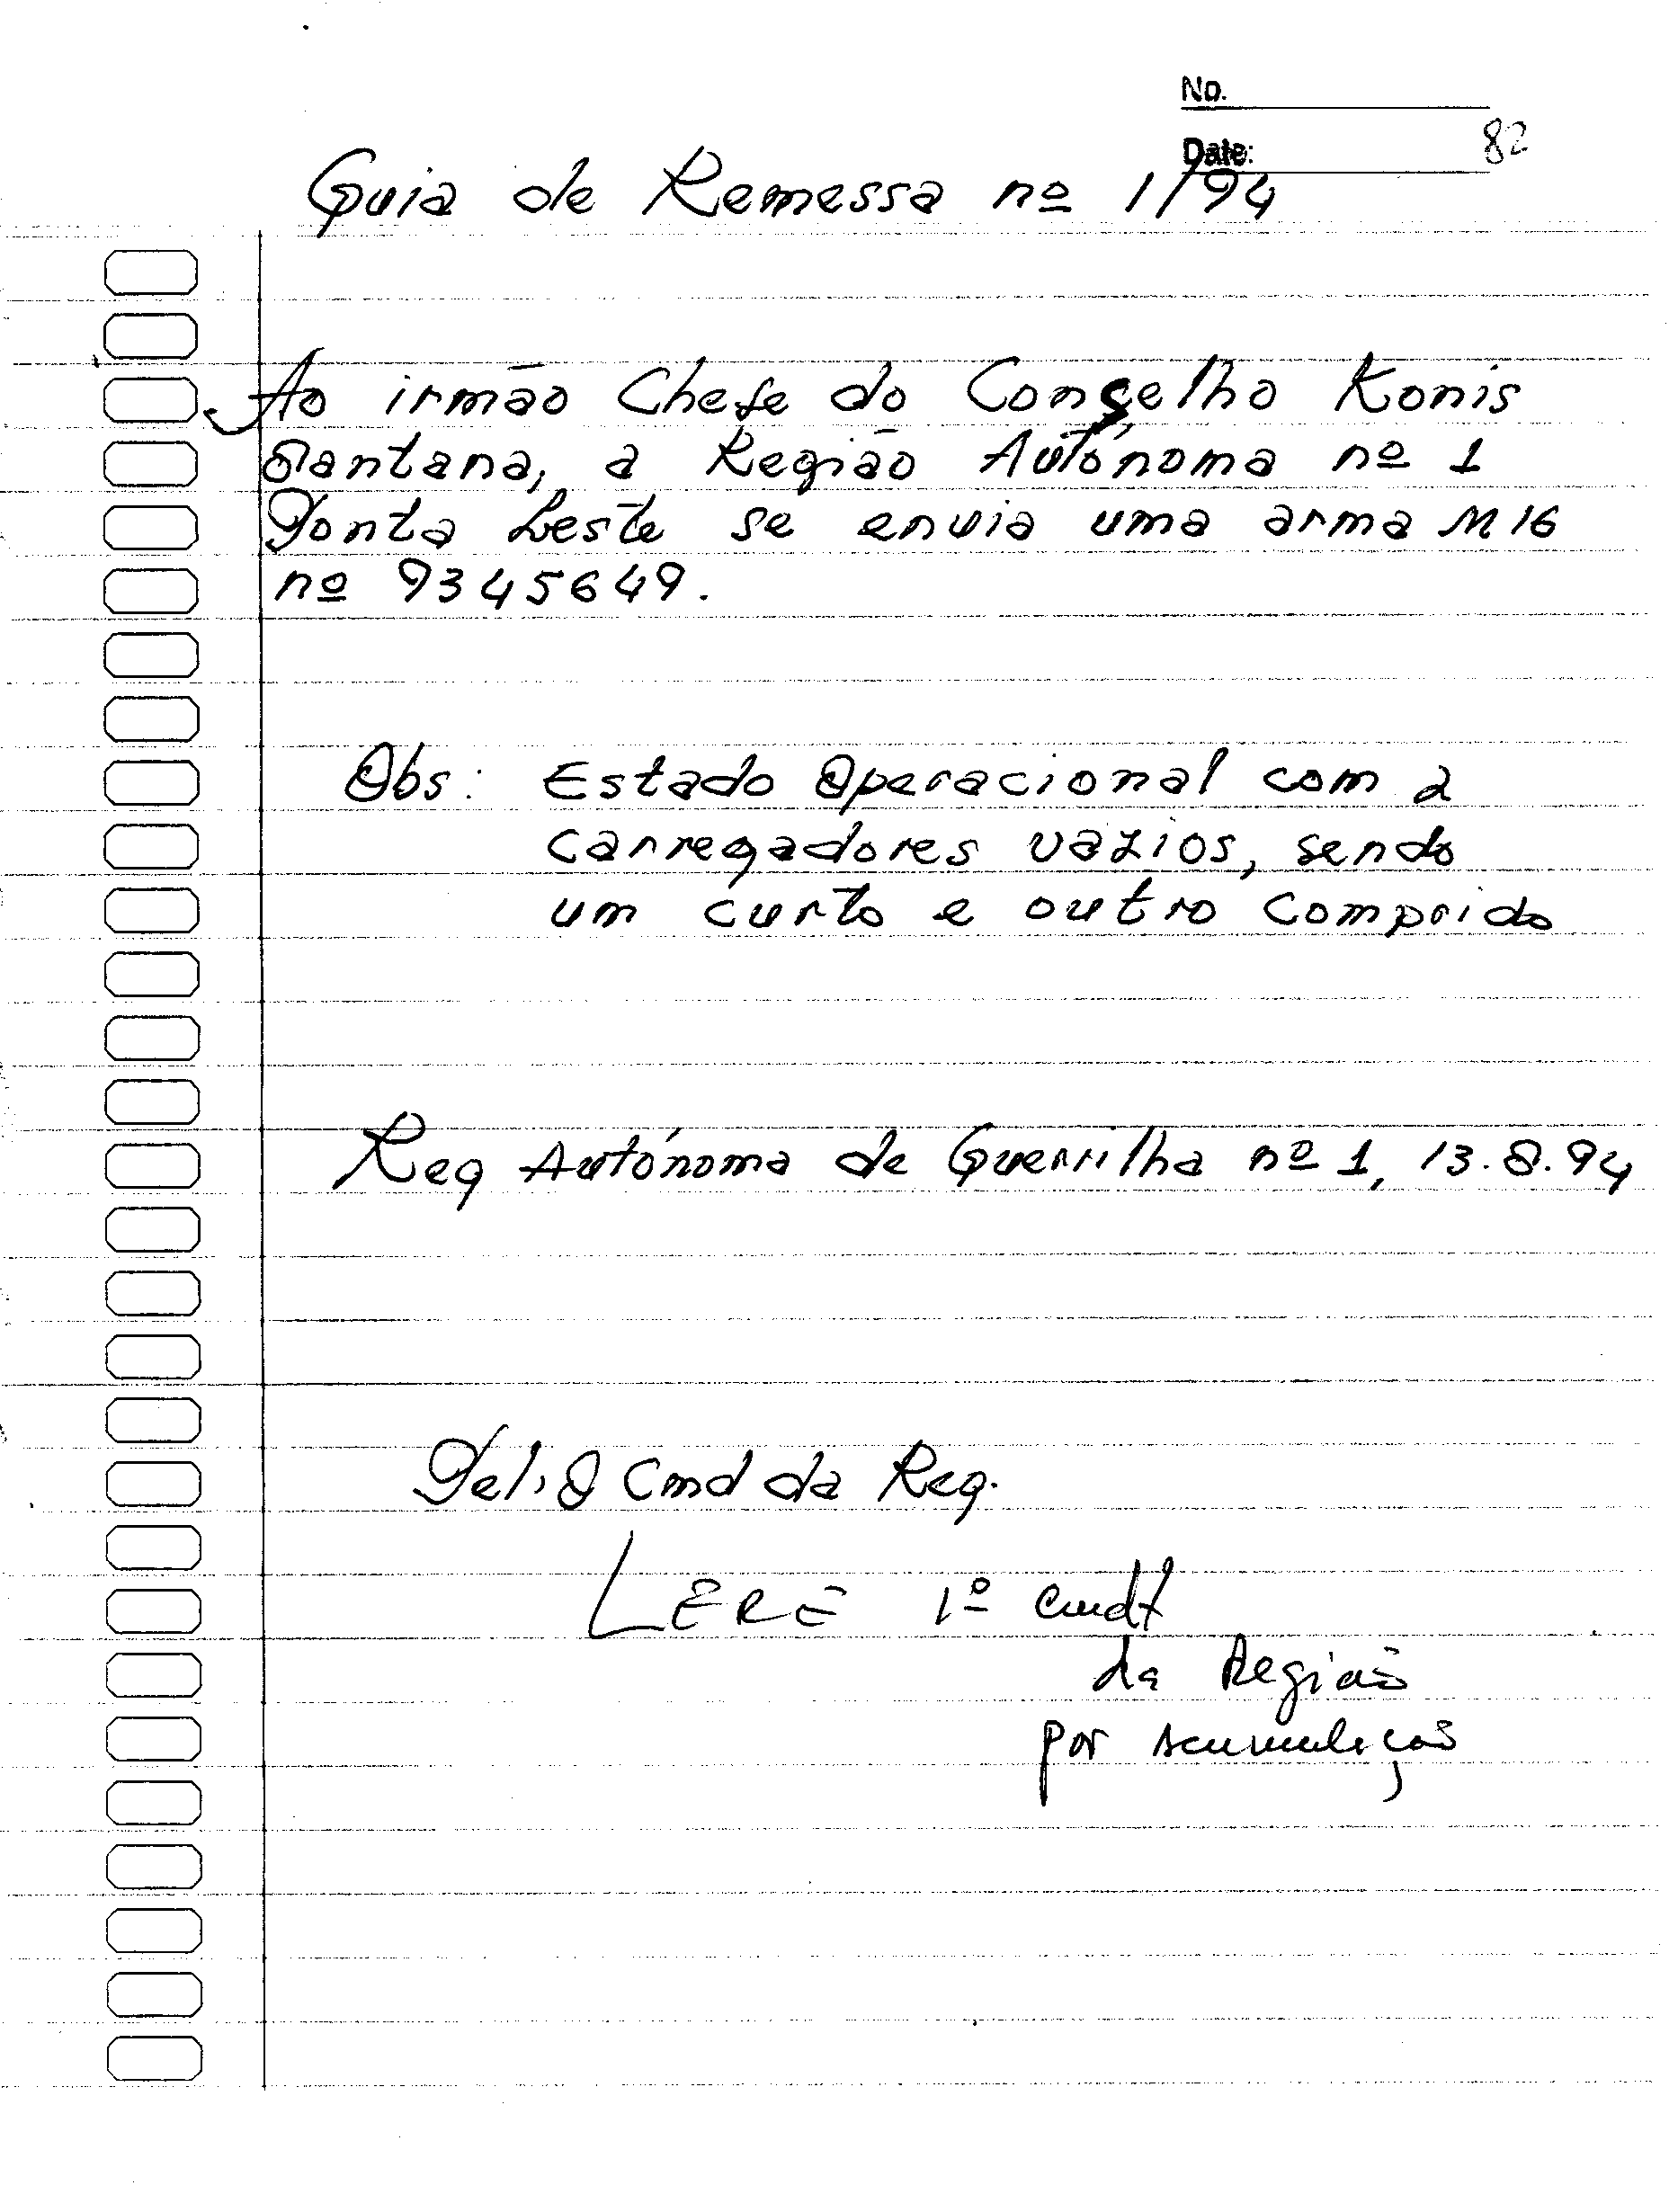 No.
Date: 82
Guia de Remessa nº 1/94
Ao irmão Chefe do Conselho Konis
Santana, a Região Autónoma nº 1
Ponta Leste se envia uma arma M16
nº 9345649.
Obs: Estado Operacional com 2
carregadores vazios, sendo
um curto e outro comprido
Reg Autónoma de Guerrilha nº 1, 13.8.94
Pel,O Cmd da Reg.
LERE 1º Cmdt
da Região
por acumulação